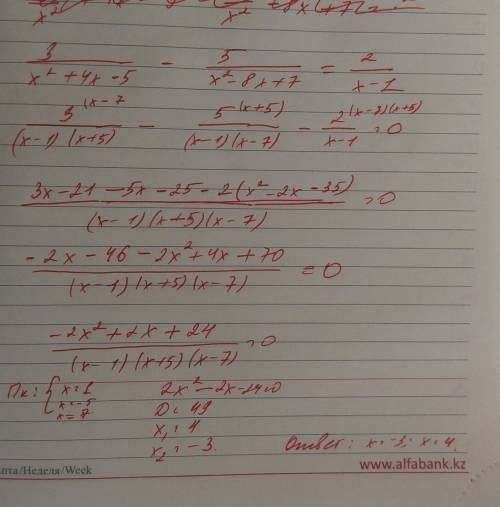 3/(x² + 4x - 5) - 5/(x² - 8x + 7) = 2/(x - 1)
3^(x - 7/((x-1)(x+5)) - 5^(x+5)/((x-1)(x-7)) - 2^(x-7)(x+5)/(x-1) = 0
(3x - 21 - 5x - 25 - 2(x² - 2x - 35))/((x-1)(x+5)(x-7)) = 0
(-2x - 46 - 2x² + 4x + 70)/((x-1)(x+5)(x-7)) = 0
(-2x² + 2x + 24)/((x-1)(x+5)(x-7)) = 0
Пк: { x = 1 2x² - 2x - 24=0
x = -5
x = 7 D = 49
x₁ = 4
x₂ = -3. Ответ: x = -3; x = 4.
/Неделя/Week
www.alfabank.kz